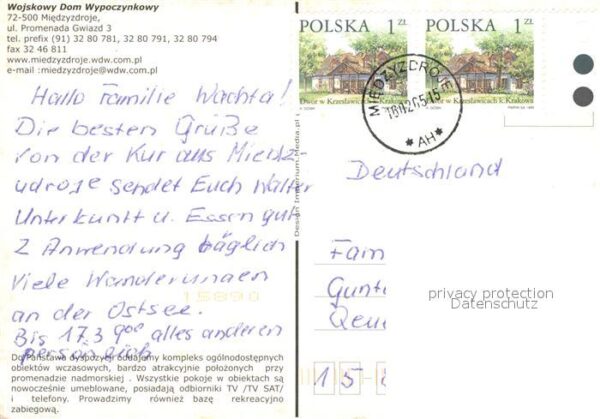 Wojskowy Dom Wypoczynkowy
72-500 Międzyzdroje,
ul. Promenada Gwiazd 3
tel. prefix (91) 32 80 781, 32 80 791, 32 80 794
fax 32 46 811
www.miedzyzdroje.wdw.com.pl
e-mail :miedzyzdroje@wdw.com.pl
Hallo Familie Wachta!
Die besten Grüße
von der Kur aus Miedz-
udroje sendet Euch Walter
Unterkunft u. Essen gut
2 Anwendung täglich
Viele Wanderungen
an der Ostsee.
Bis 17.3 900 alles anderen
persönlich
Do Państwa dyspozycji oddajemy kompleks ogólnodostępnych
obiektów wczasowych, bardzo atrakcyjnie położonych przy
promenadzie nadmorskiej . Wszystkie pokoje w obiektach są
nowocześnie umeblowane, posiadają odbiorniki TV /TV SAT/
i telefony. Prowadzimy również bazę rekreacyjno
zabiegową.
Design Imperium.Media.pl
POLSKA 1 ZŁ
Dwór w Krzesławicach k.Krakowa
POLSKA 1 ZŁ
Dwór w Krzesławicach k.Krakowa
MIĘDZYZDROJE
* AH *
Deutschland
Fam
Gunt
privacy protection
Datenschutz
15890
1 5 8